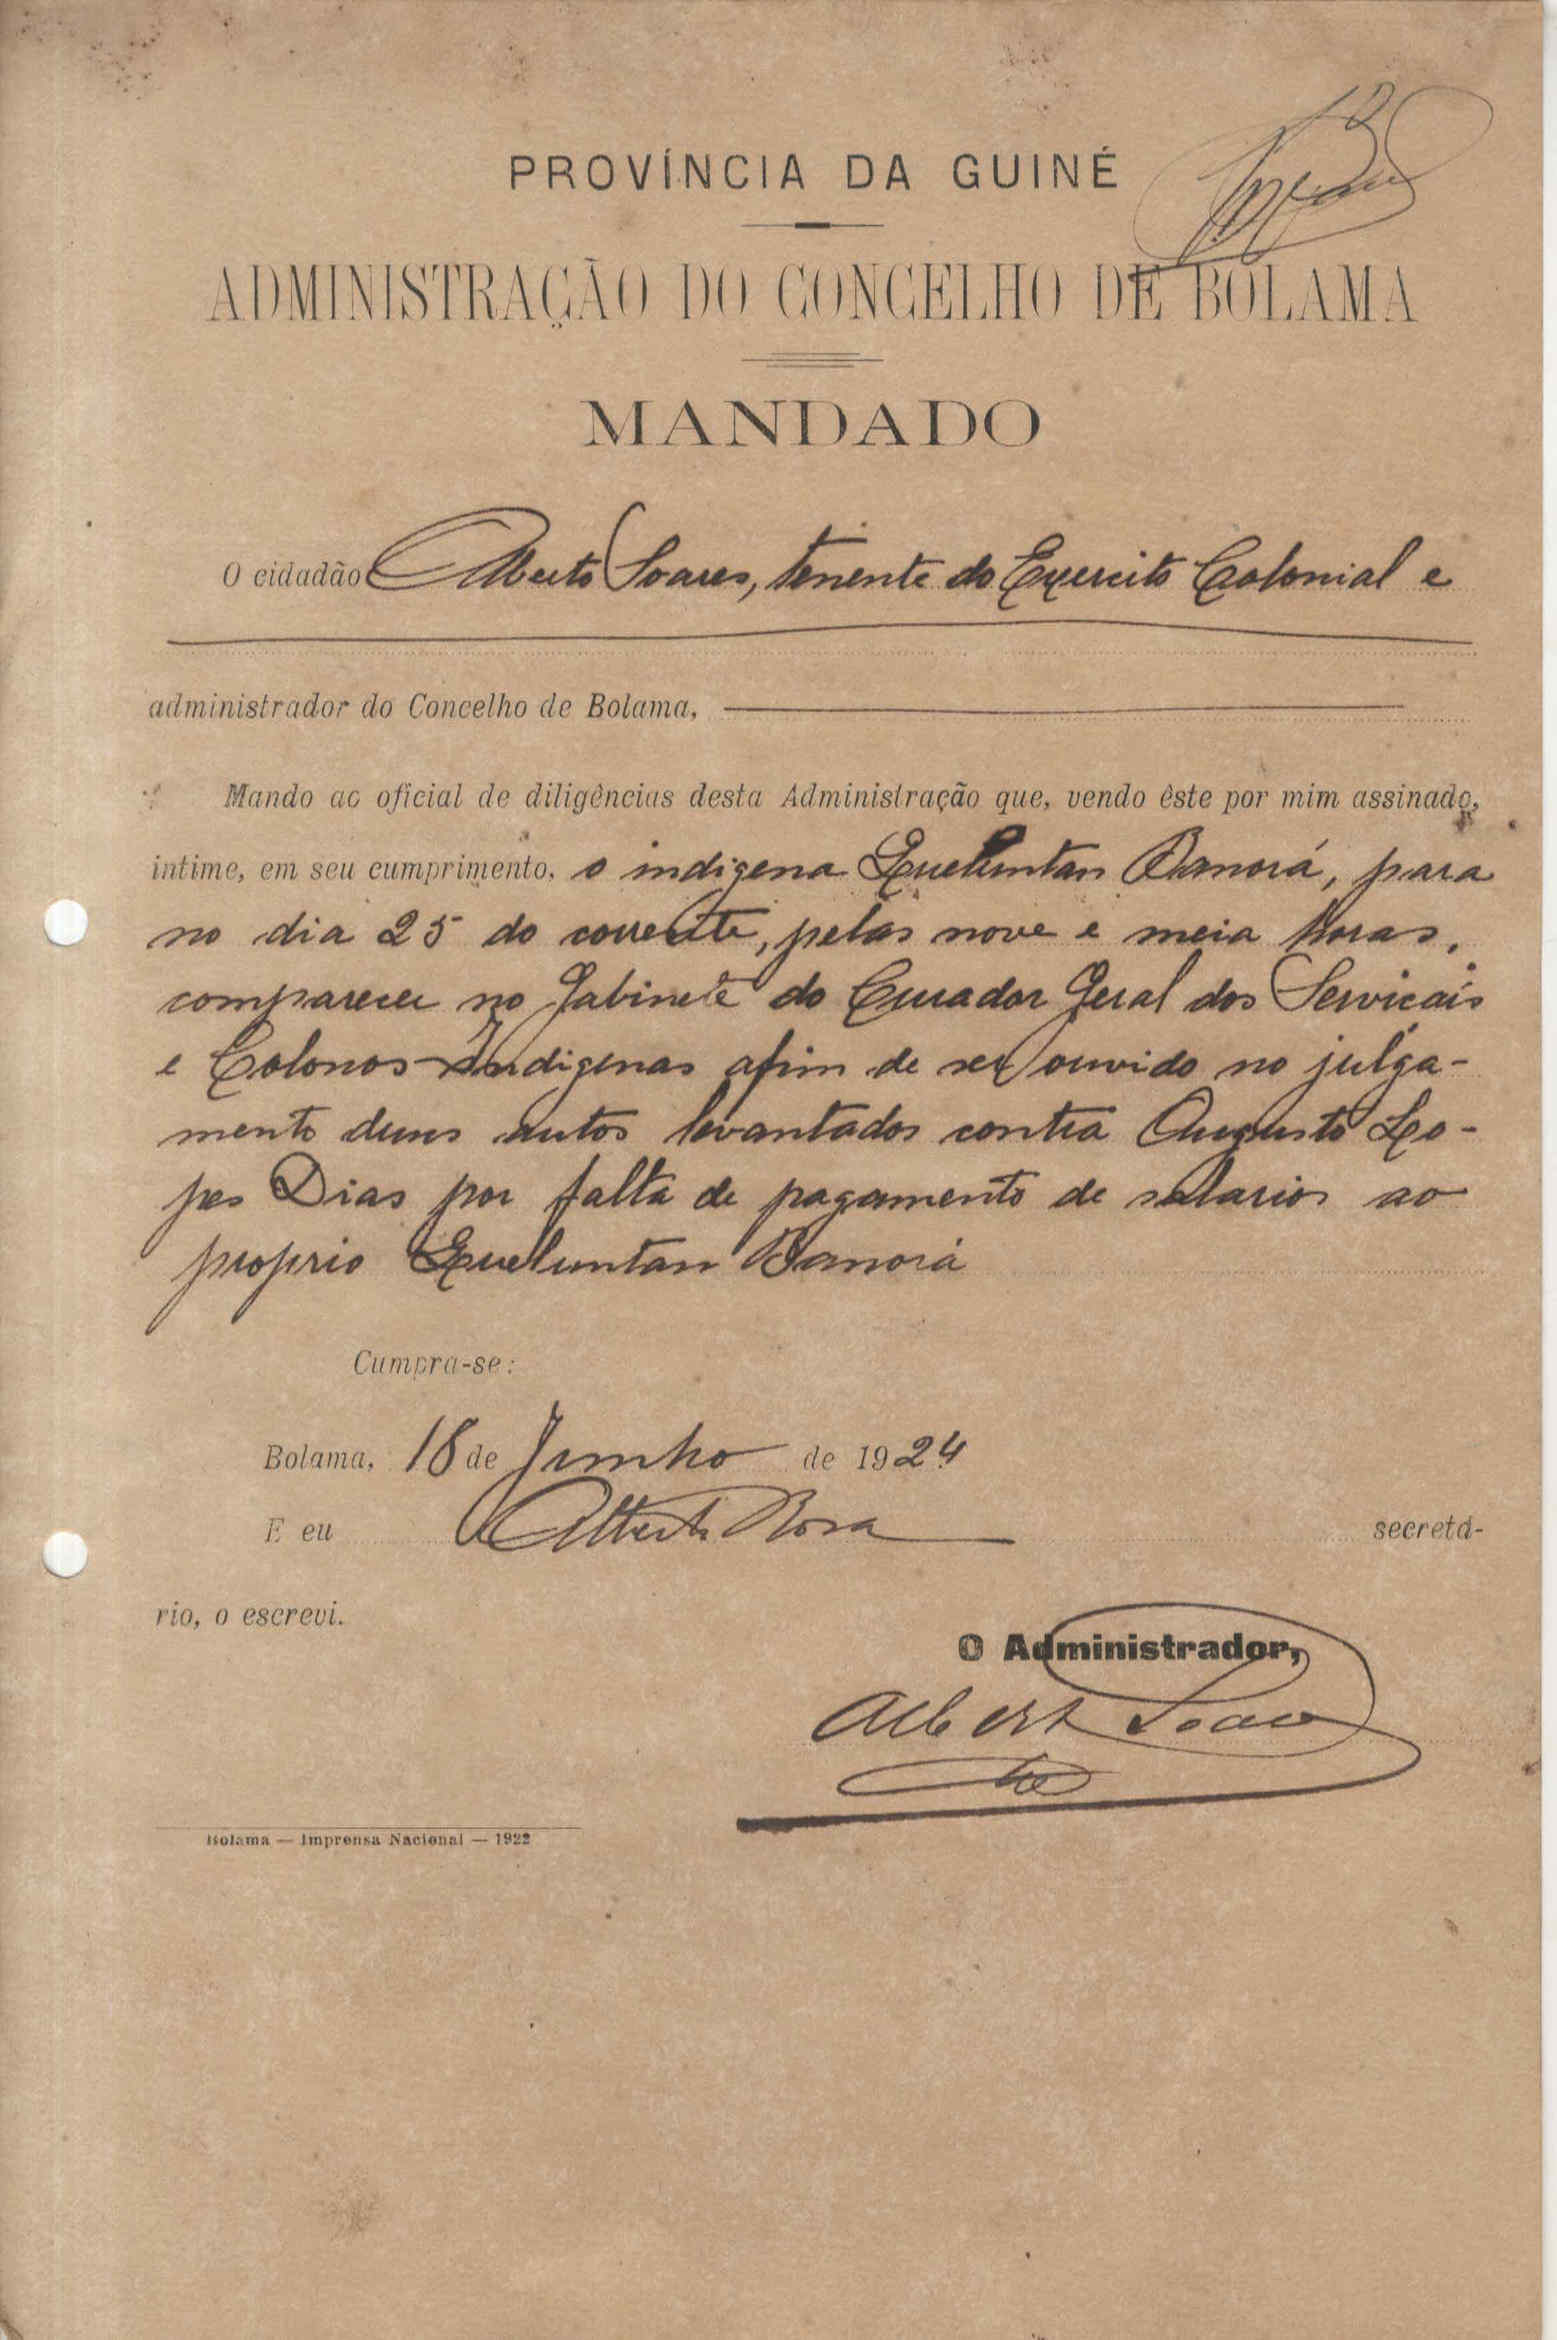 PROVÍNCIA DA GUINÉ
ADMINISTRAÇÃO DO CONCELHO DE BOLAMA
MANDADO
O cidadão Alberto Soares, tenente do Exercito Colonial e
administrador do Concelho de Bolama,
Mando ao oficial de diligências desta Administração que, vendo êste por mim assinado,
intime, em seu cumprimento, o indigena Queluntan Banorá, para
no dia 25 do corrente, pelas nove e meia horas,
comparecer no Gabinete do Curador Geral dos Serviçais
e Colonos Indigenas afim de ser ouvido no julga-
mento duns autos levantados contra Augusto Lo-
pes Dias por falta de pagamento de salarios ao
proprio Queluntan Banorá
Cumpra-se:
Bolama, 18 de Junho de 1924
E eu Alberto Rosa secretá-
rio, o escrevi.
O Administrador,
Alberto Soares
Bolama — Imprensa Nacional — 1922